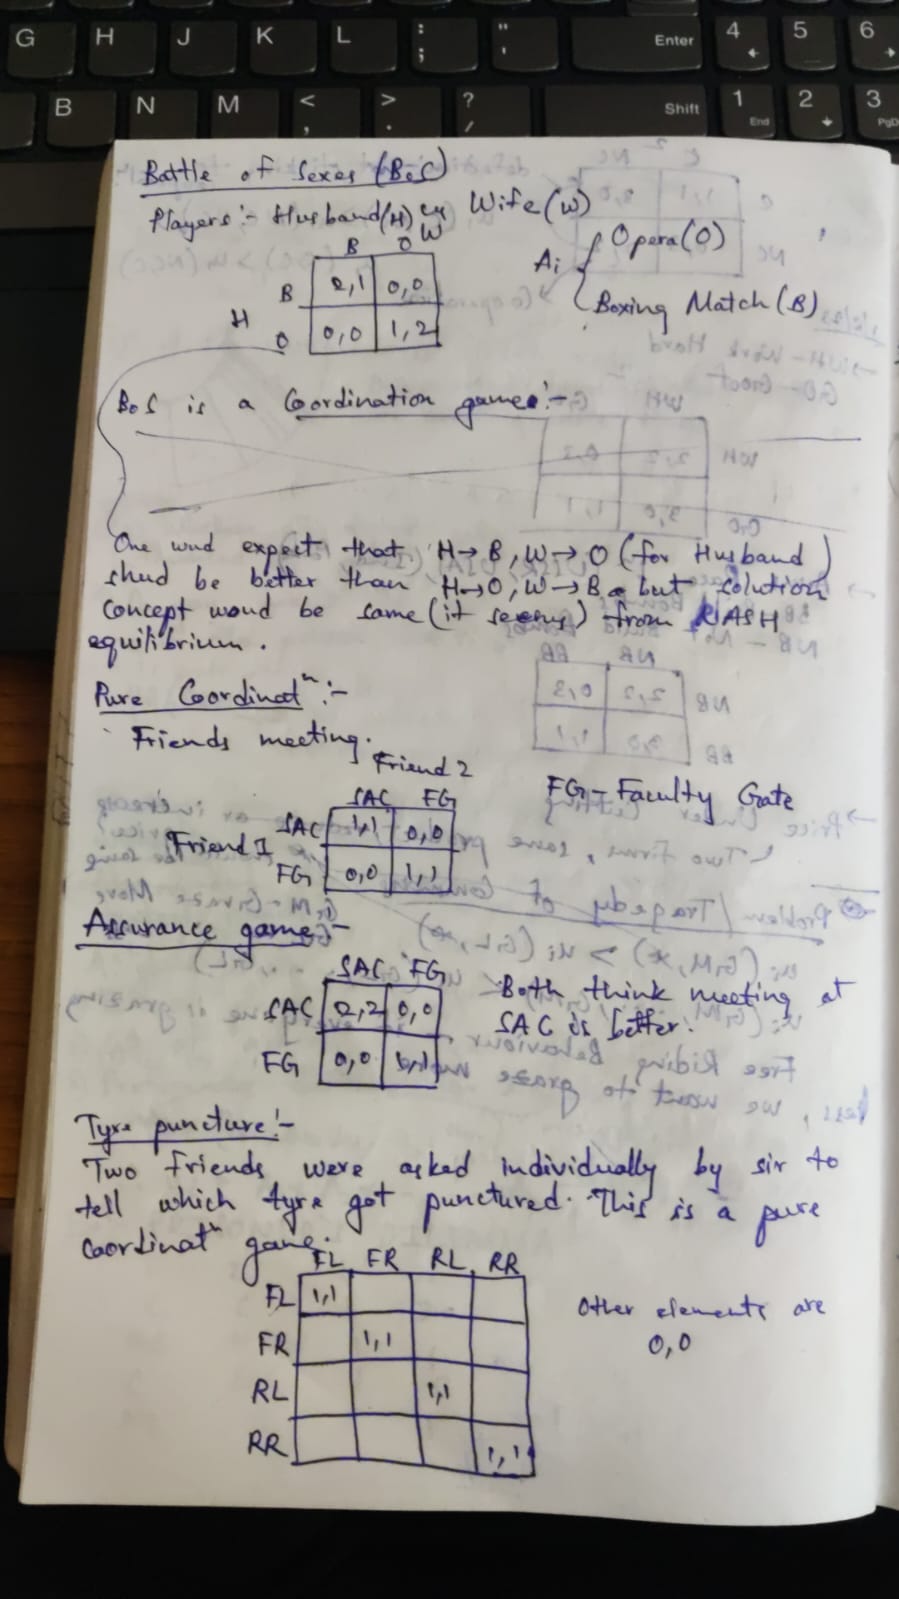 G H J K L : ; " ' Enter 4 5 6
B N M < , > . ? / Shift 1 End 2 3 PgD
Battle of Sexes (BoS)
Players:- Husband(H) & Wife(W)
W
B O
Ai { Opera(O)
Boxing Match (B)
H
B 2,1 0,0
O 0,0 1,2
BoS is a Coordination game:-
One wud expect that H→B, W→O (for Husband)
shud be better than H→O, W→B but solution
concept woud be same (it seems) from NASH
equilibrium.
Pure Coordinatⁿ:-
Friends meeting.
Friend 2
SAC FG
FG - Faculty Gate
Friend 1
SAC 1,1 0,0
FG 0,0 1,1
Assurance game:-
SAC FG
SAC 2,2 0,0
FG 0,0 1,1
Both think meeting at
SAC is better.
Tyre puncture:-
Two friends were asked individually by sir to
tell which tyre got punctured. This is a pure
Coordinatⁿ game.
FL FR RL RR
FL 1,1
FR 1,1
RL 1,1
RR 1,1
Other elements are
0,0